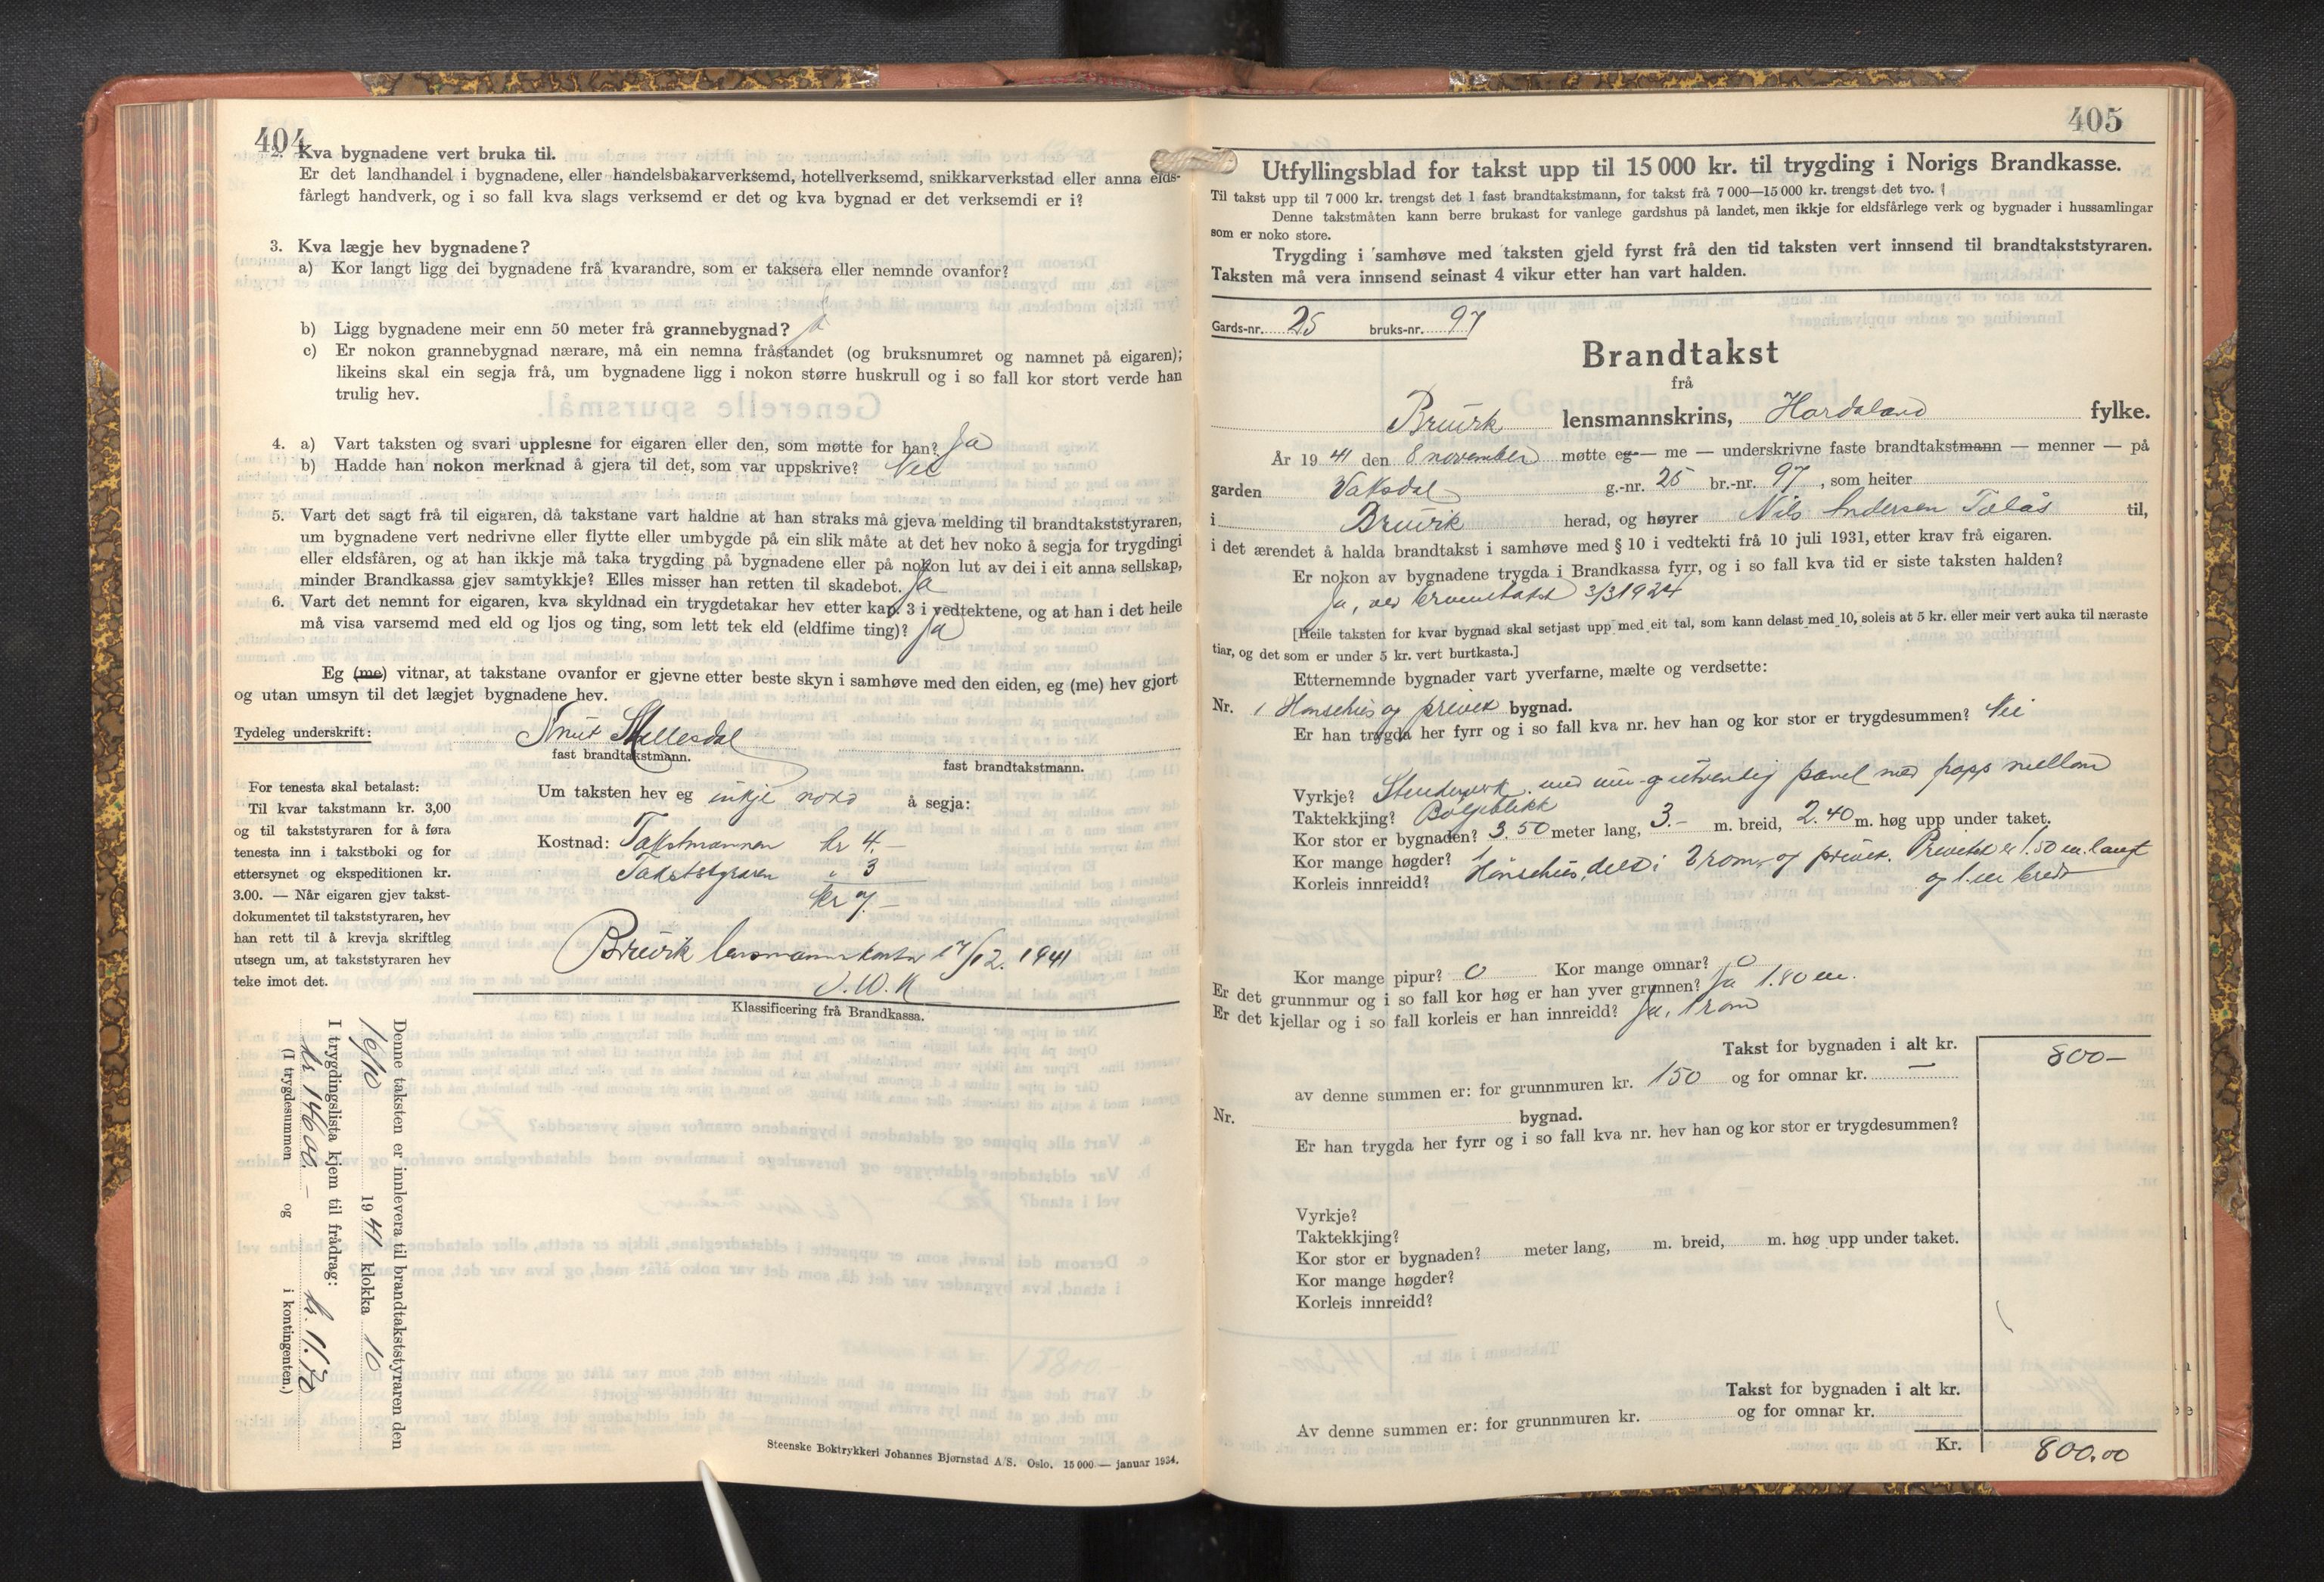 404
2. Kva bygnadene vert bruka til.
Er det landhandel i bygnadene, eller handelsbakarverksemd, hotellverksemd, snikkarverkstad eller anna elds-
fårlegt handverk, og i so fall kva slags verksemd er det og kva bygnad er det verksemdi er i?
3. Kva lægje hev bygnadene?
a) Kor langt ligg dei bygnadene frå kvarandre, som er taksera eller nemnde ovanfor?
b) Ligg bygnadene meir enn 50 meter frå grannebygnad?
c) Er nokon grannebygnad nærare, må ein nemna fråstandet (og bruksnumret og namnet på eigaren);
likeins skal ein segja frå, um bygnadene ligg i nokon større huskrull og i so fall kor stort verde han
trulig hev.
4. a) Vart taksten og svari upplesne for eigaren eller den, som møtte for han? Ja
b) Hadde han nokon merknad å gjera til det, som var uppskrive? Nei
5. Vart det sagt frå til eigaren, då takstane vart haldne at han straks må gjeva melding til brandtakststyraren,
um bygnadene vert nedrivne eller flytte eller umbygde på ein slik måte at det hev noko å segja for trygdingi
eller eldsfåren, og at han ikkje må taka trygding på bygnadene eller på nokon lut av dei i eit anna sellskap,
minder Brandkassa gjev samtykkje? Elles misser han retten til skadebot. Ja
6. Vart det nemnt for eigaren, kva skyldnad ein trygdetakar hev etter kap. 3 i vedtektene, og at han i det heile
må visa varsemd med eld og ljos og ting, som lett tek eld (eldfime ting)? Ja
Eg (me) vitnar, at takstane ovanfor er gjevne etter beste skyn i samhøve med den eiden, eg (me) hev gjort
og utan umsyn til det lægjet bygnadene hev.
Tydeleg underskrift: Knut Stallesdal
fast brandtakstmann. fast brandtakstmann.
For tenesta skal betalast:
Til kvar takstmann kr. 3,00
og til takststyraren for å føra
tenesta inn i takstboki og for
ettersynet og ekspeditionen kr.
3.00. — Når eigaren gjev takst-
dokumentet til takststyraren, hev
han rett til å krevja skriftleg
utsegn um, at takststyraren hev
teke imot det.
Um taksten hev eg inkje noko å segja:
Kostnad: Takstmannen kr 4.-
Takststyraren " 3
kr 7.-
Bruvik lensmannskontor 17/12. 1941
Klassificering frå Brandkassa.
Denne taksten er innlevera til brandtakststyraren den
16/10 1941 klokka 10
I trygdingslista kjem til frådrag:
kr 14600.- kr. 11.70
(I trygdesummen og i kontingenten.)
Steenske Boktrykkeri Johannes Bjørnstad A/S. Oslo. 15000 — januar 1934.
405
Utfyllingsblad for takst upp til 15 000 kr. til trygding i Norigs Brandkasse.
Til takst upp til 7 000 kr. trengst det 1 fast brandtakstmann, for takst frå 7 000—15 000 kr. trengst det tvo.
Denne takstmåten kann berre brukast for vanlege gardshus på landet, men ikkje for eldsfårlege verk og bygnader i hussamlingar
som er noko store.
Trygding i samhøve med taksten gjeld fyrst frå den tid taksten vert innsend til brandtakststyraren.
Taksten må vera innsend seinast 4 vikur etter han vart halden.
Gards-nr. 25 bruks-nr. 97
Brandtakst
frå
Bruvik lensmannskrins, Hordaland fylke.
År 1941 den 8 november møtte eg — me — underskrivne faste brandtakstmann — menner — på
garden Vaksdal g.-nr. 25 br.-nr. 97, som heiter
i Bruvik herad, og høyrer Nils Andersen Tolås til,
i det ærendet å halda brandtakst i samhøve med § 10 i vedtekti frå 10 juli 1931, etter krav frå eigaren.
Er nokon av bygnadene trygda i Brandkassa fyrr, og i so fall kva tid er siste taksten halden?
Ja, ved 3/3 1924
[Heile taksten for kvar bygnad skal setjast upp med eit tal, som kann delast med 10, soleis at 5 kr. eller meir vert auka til næraste
tiar, og det som er under 5 kr. vert burtkasta.]
Etternemnde bygnader vart yverfarne, mælte og verdsette:
Nr. 1 Hønsehus og privet bygnad.
Er han trygda her fyrr og i so fall kva nr. hev han og kor stor er trygdesummen? Nei
Vyrkje? Stenderverk med inn- og utvendig panel med papp mellom
Taktekkjing? Bølgeblikk
Kor stor er bygnaden? 3.50 meter lang, 3.- m. breid, 2.40 m. høg upp under taket.
Kor mange høgder? 1
Korleis innreidd? Hønsehus, delt i 2 rom, og privet. Privetet er 1.50 m. langt
og 1 m bredt
Kor mange pipur? 0 Kor mange omnar? 0
Er det grunnmur og i so fall kor høg er han yver grunnen? Ja 1.80 m.
Er det kjellar og i so fall korleis er han innreidd? Ja, 1 rom
Takst for bygnaden i alt kr. 800-
av denne summen er: for grunnmuren kr. 150 og for omnar kr. —
Nr. bygnad.
Er han trygda her fyrr og i so fall kva nr. hev han og kor stor er trygdesummen?
Vyrkje?
Taktekkjing?
Kor stor er bygnaden? meter lang, m. breid, m. høg upp under taket.
Kor mange høgder?
Korleis innreidd?
Takst for bygnaden i alt kr.
Av denne summen er: for grunnmuren kr. og for omnar kr.
Kr. 800.00